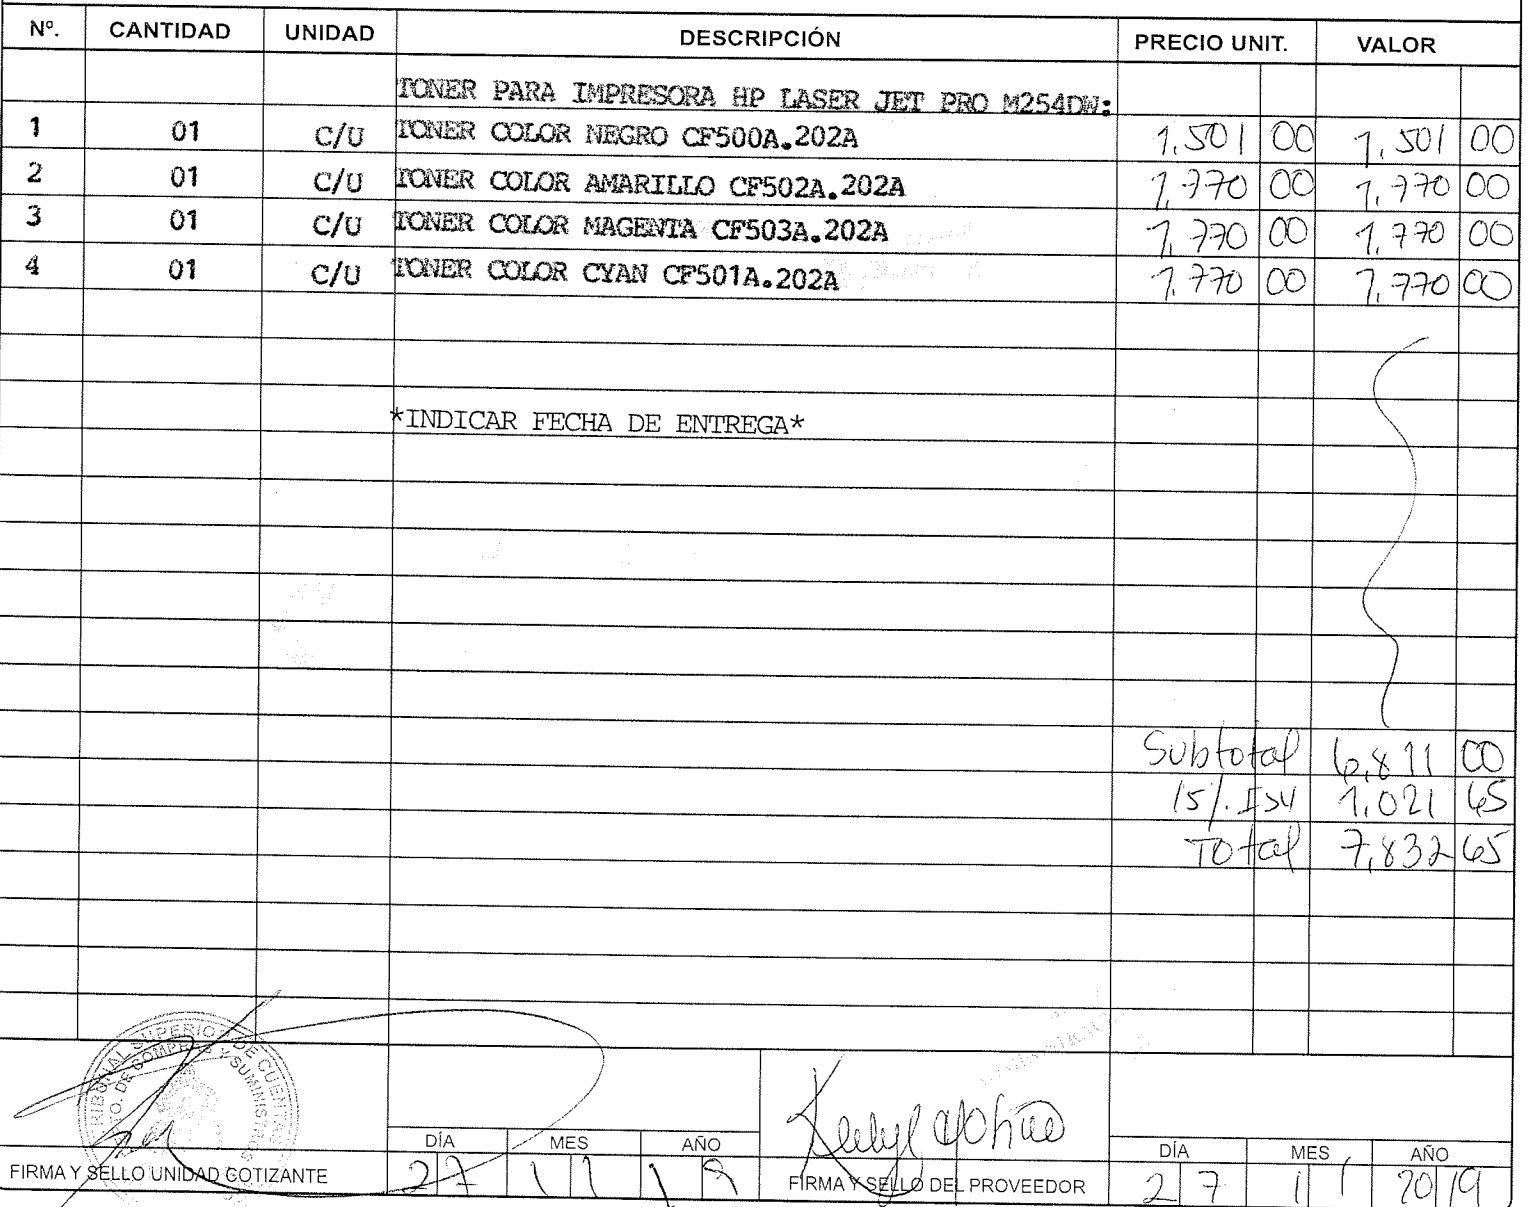 Nº. CANTIDAD UNIDAD DESCRIPCIÓN PRECIO UNIT. VALOR
TONER PARA IMPRESORA HP LASER JET PRO M254DW:
1 01 C/U TONER COLOR NEGRO CF500A.202A 1,501 00 1,501 00
2 01 C/U TONER COLOR AMARILLO CF502A.202A 1,770 00 1,770 00
3 01 C/U TONER COLOR MAGENTA CF503A.202A 1,770 00 1,770 00
4 01 C/U TONER COLOR CYAN CF501A.202A 1,770 00 1,770 00
*INDICAR FECHA DE ENTREGA*
Subtotal 6,811 00
15%. ISV 1,021 65
Total 7,832 65
TRIBUNAL SUPERIOR DE CUENTAS
DPTO. DE COMPRAS Y SUMINISTROS
DÍA MES AÑO DÍA MES AÑO
FIRMA Y SELLO UNIDAD COTIZANTE 27 11 19 FIRMA Y SELLO DEL PROVEEDOR 27 11 2019